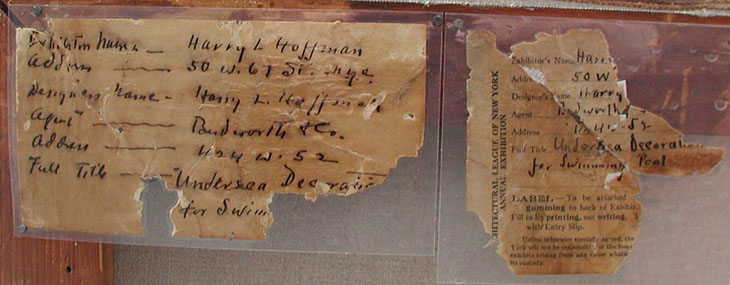 Exhibitors Name — Harry L Hoffman
Address — 50 W. 67 St. Nyc
Designers Name - Harry L. Hoffman
Agent — Budworth & Co.
Address — 424 W. 52
Full Title — Undersea Decoration
for Swim
ARCHITECTURAL LEAGUE OF NEW YORK
ANNUAL EXHIBITION
Exhibitor's Name Harr
Address 50 W
Designer's Name Harry
Agent Budworth
Address 424 W. 52
Full Title Undersea Decorati
for Swimming Pool
LABEL — To be attached
gumming to back of Exhibit
Fill in by printing, not writing,
with Entry Slip.
Unless otherwise specially agreed, the
York will not be responsible for the
exhibits arising from any cause
its custody.